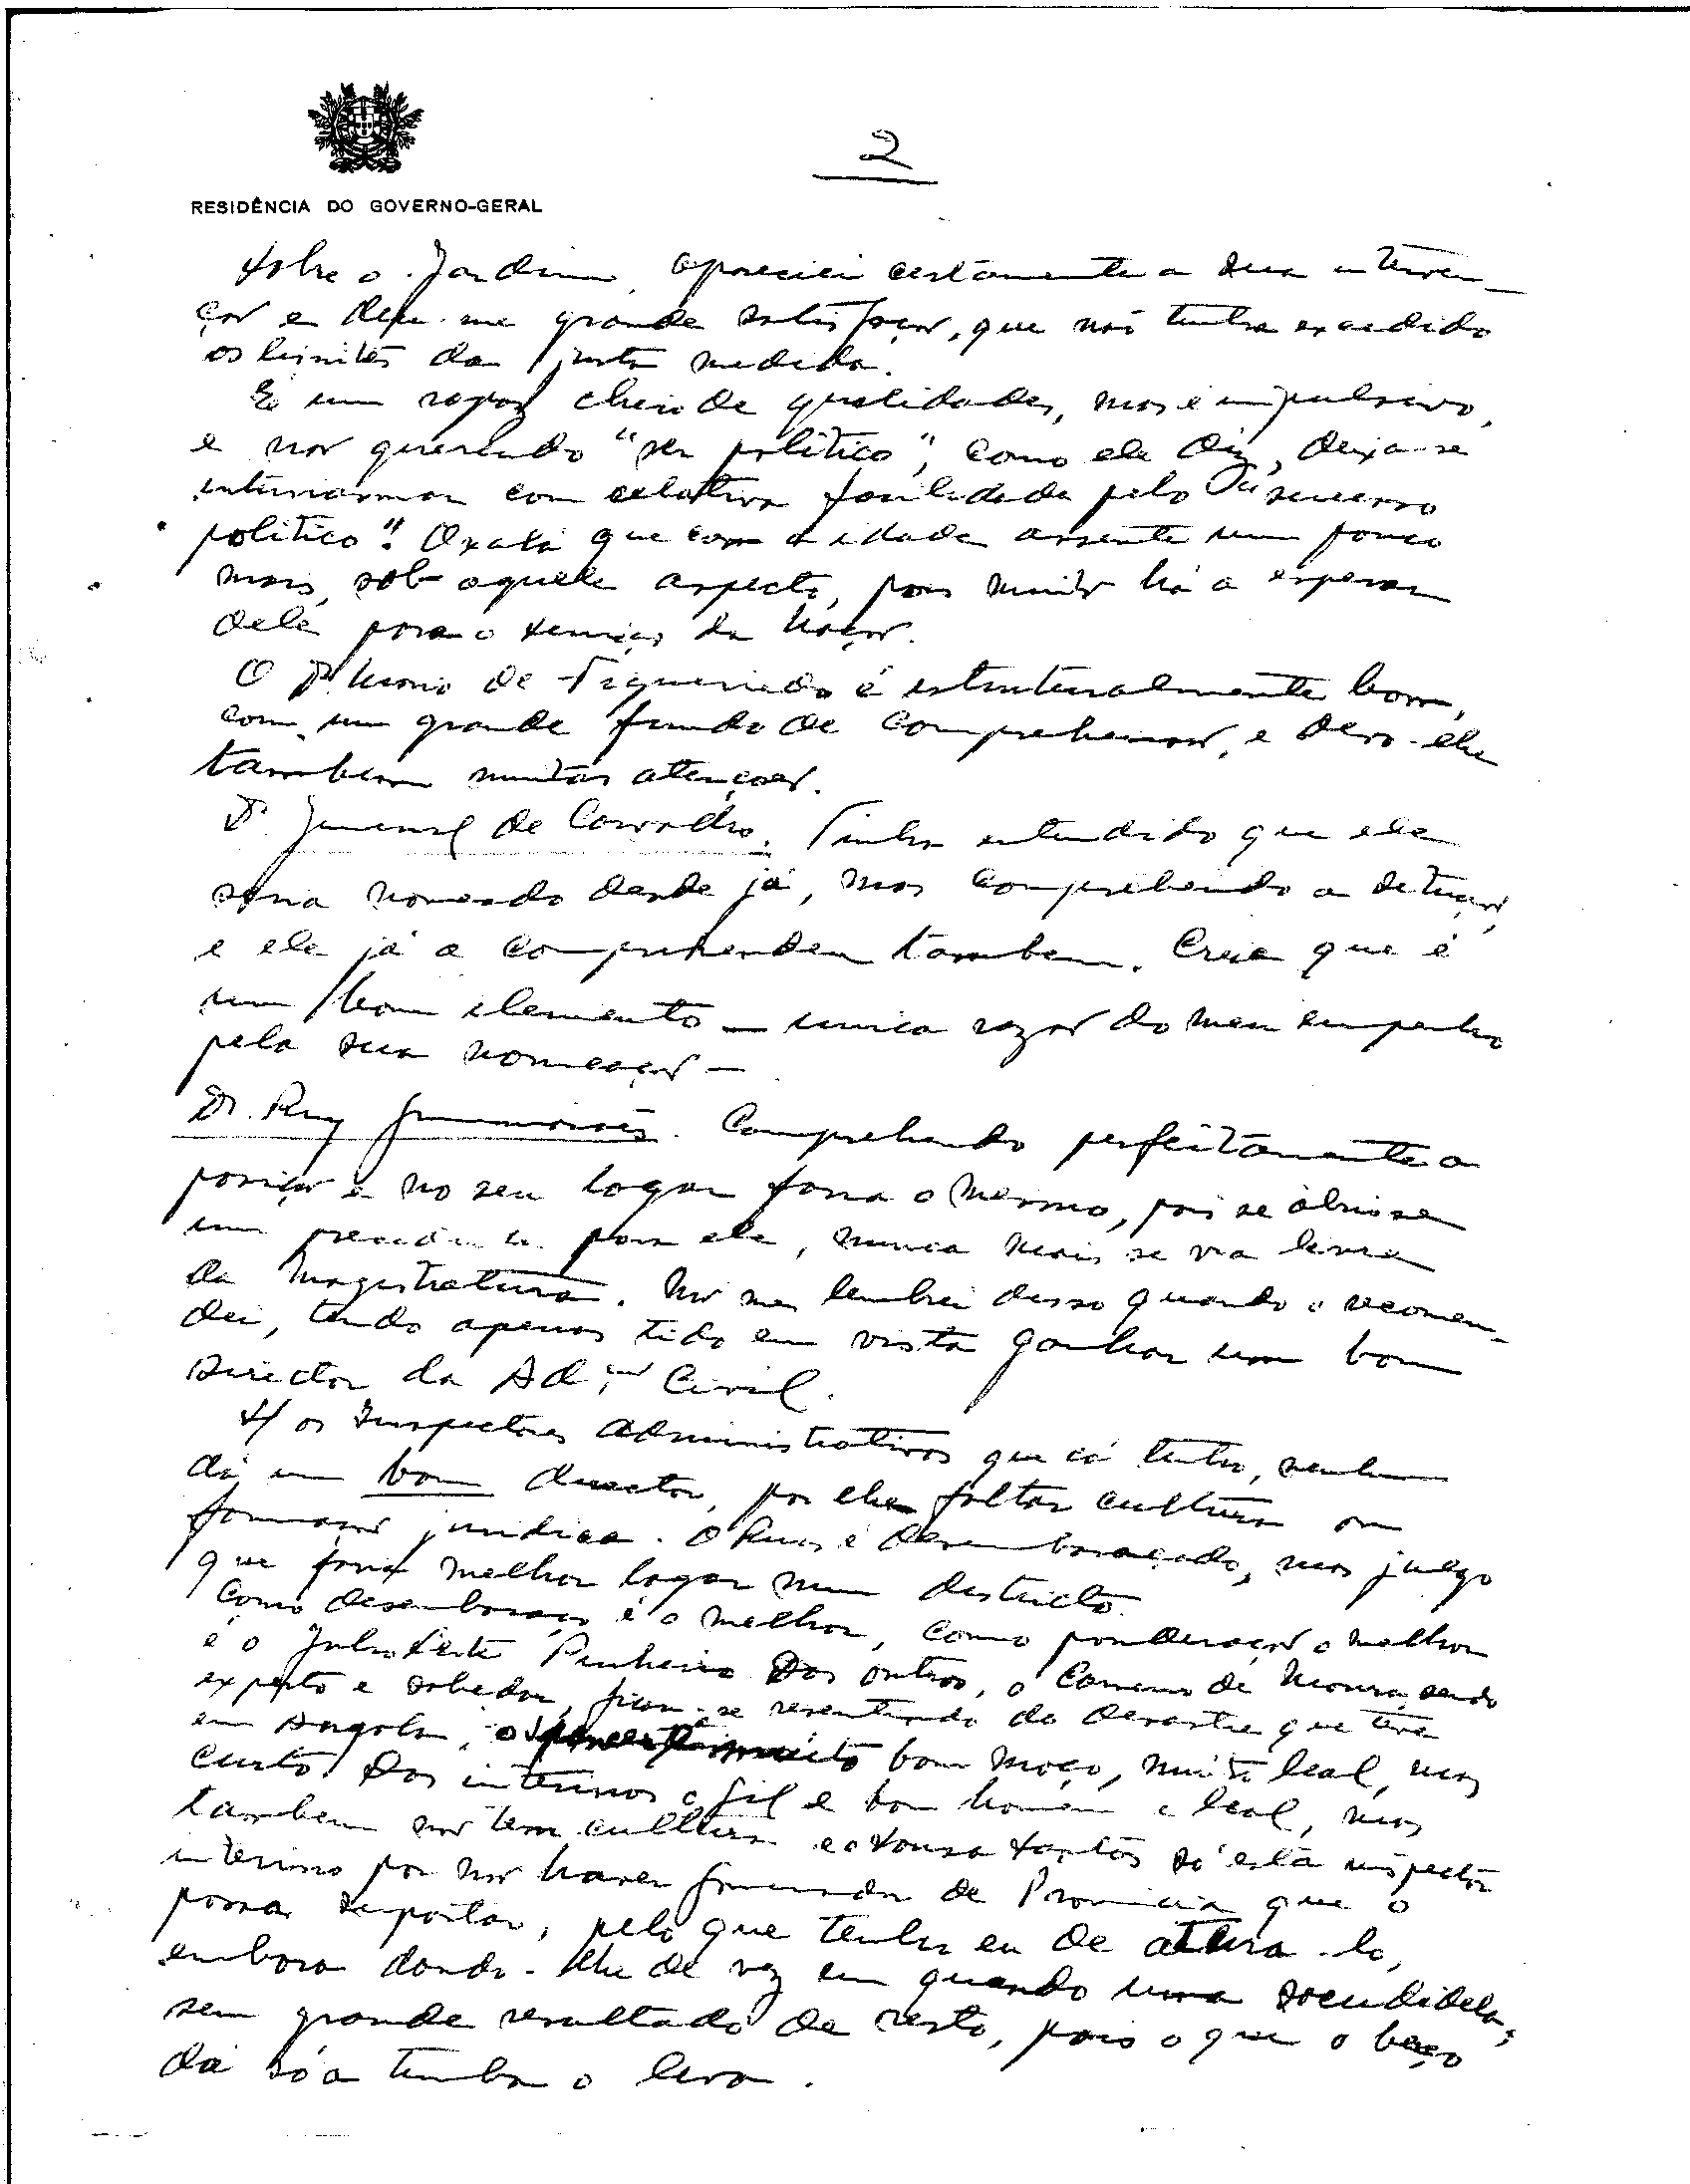 2
RESIDÊNCIA DO GOVERNO-GERAL
Sobre o Jardim, apreciei certamente a sua interven-
ção e deu-me grande satisfação, que não tenha excedido
os limites da justa medida.
É um rapaz cheio de qualidades, mas é impulsivo,
e não querendo "ser politico", como ele diz, deixa-se
entusiasmar com relativa facilidade pelo "sucesso
politico". Oxalá que com a idade assente um pouco
mais, sob aquele aspecto, pois muito há a esperar
dele para o serviço da Nação.
O Dr. de Figueiredo é estruturalmente bom,
com um grande fundo de comprehensão, e devo-lhe
tambem muitas atenções.
Dr. Juvenal de Carvalho. Tinha entendido que ele
seria nomeado desde já, mas comprehendo a situação,
e ele já a comprehendeu tambem. Creia que é
um bom elemento — unica razão do meu empenho
pela sua nomeação —
Dr. Ruy Guimarães. Comprehendo perfeitamente a
posição e no seu logar faria o mesmo, pois se abrisse
um precedente para ele, nunca mais se via livre
da Magistratura. Não me lembrei disso quando o recomen-
dei, tendo apenas tido em vista ganhar um bom
Director da Ad.ção Civil.
S/ os Inspectores administrativos que cá tenho, nenhum
dá um bom director, por lhe faltar cultura ou
formação juridica. O é desembaraçado, mas julgo
que fará melhor logar num districto.
Como desembaraço é o melhor, como ponderação o melhor
é o Julio Leite Pinheiro. Dos outros, o Carneiro de Moura, sendo
experto e sabedor, ficou-se resentindo do desastre que teve
em Angola, o muito bom moço, muito leal, mas
curto. Dos interinos o Gil é bom homem e leal, mas
tambem não tem cultura e o Sousa Santos só está inspector
interino por não haver Governador de Provincia que o
possa suportar, pelo que tenho eu de atura-lo,
embora dando-lhe de vez em quando uma sacudidela,
sem grande resultado de resto, pois o que o berço
dá só a tumba o leva.